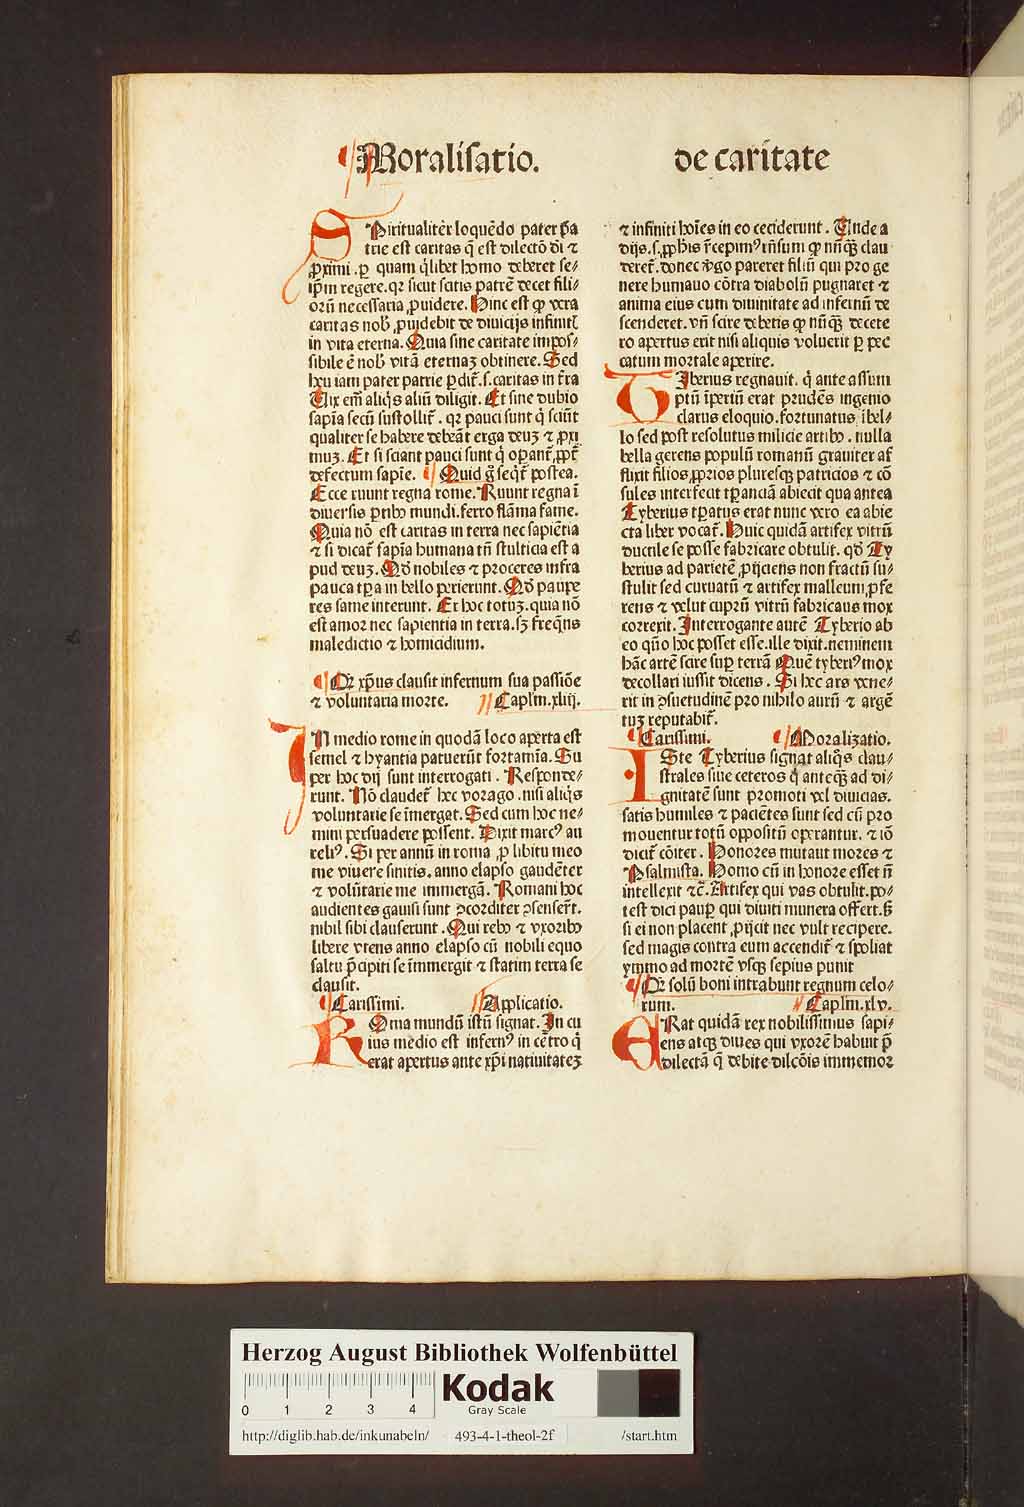 Moralisatio. de caritate
SPiritualiter loquēdo pater p̄a
trie est caritas q̄ est dilectō di ⁊
ꝓximi . ꝑ quam q̄libet homo deberet se⸗
ip̄m regere. qr sicut scitis patrē decet fili⸗
orū necessaria ꝓuidere. Hinc est ꝙ vera
caritas nob̄ ꝓuidebit de diuicijs infinitꝭ
in vita eterna. Quia sine caritate impos⸗
sibile ē nob̄ vitā eternaꝫ obtinere. Sed
heu iam pater patrie ꝑdit̄ .s. caritas in t̄ra
Uix em̄ aliq̄s aliū diligit. Et sine dubio
sapīa secū sustollit̄ . qr pauci sunt q̄ sciūt
qualiter se habere debeāt erga deuꝫ ⁊ ꝓxi
muꝫ. Et si sciant pauci sunt q̄ oꝑant̄ ꝓpt̄
defectum sapīe. Quid ḡ seqt̄ postea.
Ecce ruunt regna rome. Ruunt regna ī
diuersis ꝑtibꝰ mundi. ferro flāma fame.
Quia nō est caritas in terra nec sapiētia
⁊ si dicat̄ sapīa humana tn̄ stulticia est a
pud deuꝫ. Qd̄ nobiles ⁊ proceres infra
pauca tꝑa in bello perierunt. Qd̄ pauꝑe
res fame interunt. Et hoc totuꝫ. quia nō
est amor nec sapientia in terra. sꝫ freq̄ns
maledictio ⁊ homicidium.
Qr xp̄us clausit infernum sua passiōe
⁊ voluntaria morte. Caplm̄. xliij.
IN medio rome in quodā loco aperta est
semel ⁊ hyantia patuerūt fortamia. Su
per hoc dij sunt interrogati . Responde⸗
runt. Nō claudet̄ hec vorago . nisi aliq̄s
voluntarie se īmergat. Sed cum hoc ne⸗
mini persuadere possent. Dixit marcꝰ au
reliꝰ. Si per annū in roma ꝓ libitu meo
me viuere sinitis. anno elapso gaudēter
⁊ volūtarie me immergā. Romani hoc
audientes gauisi sunt ↄcorditer ↄsenserūt.
nihil sibi clauserunt . Qui rebꝰ ⁊ vxoribꝰ
libere vtens anno elapso cū nobili equo
saltu p̄cipiti se īmmergit ⁊ statim terra se
clausit.
Carissimi. Applicatio.
ROma mundū istū signat. In cu
ius medio est infernꝰ in cētro q̄
erat apertus ante xp̄i natiuitateꝫ
⁊ infiniti hoīes in eo ceciderunt . Unde a
dijs .s. ꝓphīs r̄cepimꝰ rn̄sum ꝙ nūꝗꝫ clau
deret̄. donec v̓go pareret filiū qui pro ge
nere humauo cōtra diabolū pugnaret ⁊
anima eius cum diuinitate ad infernū de
scenderet. vn̄ scire debetis ꝙ nūꝗꝫ decete
ro apertus erit nisi aliquis voluerit ꝑ pec
catum mortale aperire.
TIberius regnauit. q̄ ante assum
ptū īperiū erat prudēs ingenio
clarus eloquio. fortunatus ībel⸗
lo sed post resolutus milicie artibꝰ. nulla
bella gerens populū romanū grauiter af
flixit filios ꝓprios pluresqꝫ patricios ⁊ cō
sules interfecit tꝑanciā abiecit qua antea
Tyberius tꝑatus erat nunc vero ea abie
cta liber vocat̄. Huic quidā artifex vitrū
ductile se posse fabricare obtulit. qd̄ Ty
berius ad parietē ꝓijciens non fractū su⸗
stulit sed curuatū ⁊ artifex malleum ꝓfe
rens ⁊ velut cuprū vitrū fabricaus mox
correxit. Interrogante autē Tyberio ab
eo quō hoc posset esse. ille dixit. neminem
hāc artē scire suꝑ terrā Quē tyberiꝰ mox
decollari iussit dicens . Si hec ars vene⸗
rit in ↄsuetudinē pro nihilo aurū ⁊ argē
tuꝫ reputabit̄.
Carissimi. Moralizatio.
ISte Tyberius signat aliq̄s clau⸗
strales siue ceteros q̄ anteqꝫ ad di⸗
gnitatē sunt promoti vel diuicias.
satis humiles ⁊ paciētes sunt sed cū pro
mouentur totū oppositū operantur. ⁊ iō
dicit̄ cōiter. Honores mutaut mores ⁊
Psalmista. Homo cū in honore esset n̄
intellexit ⁊c̄. Artifex qui vas obtulit. po⸗
test dici pauꝑ qui diuiti munera offert. sꝫ
si ei non placent ꝓijcit nec vult recipere.
sed magis contra eum accendit̄ ⁊ spoliat
ymmo ad mortē vsqꝫ sepius punit
Qr solū boni intrabunt regnum celo⸗
rum. Caplm̄. xlv.
ERat quidā rex nobilissimus sapi⸗
ens atqꝫ diues qui vxorē habuit p̄
dilectā q̄ debite dilcōis immemor
Herzog August Bibliothek Wolfenbüttel
0 1 2 3 4
Kodak
Gray Scale
http://diglib.hab.de/inkunabeln/ 493-4-1-theol-2f /start.htm